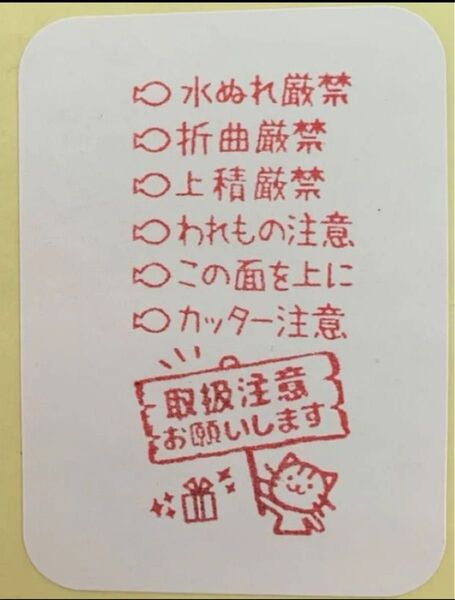 水ぬれ厳禁
折曲厳禁
上積厳禁
われもの注意
この面を上に
カッター注意
取扱注意
お願いします